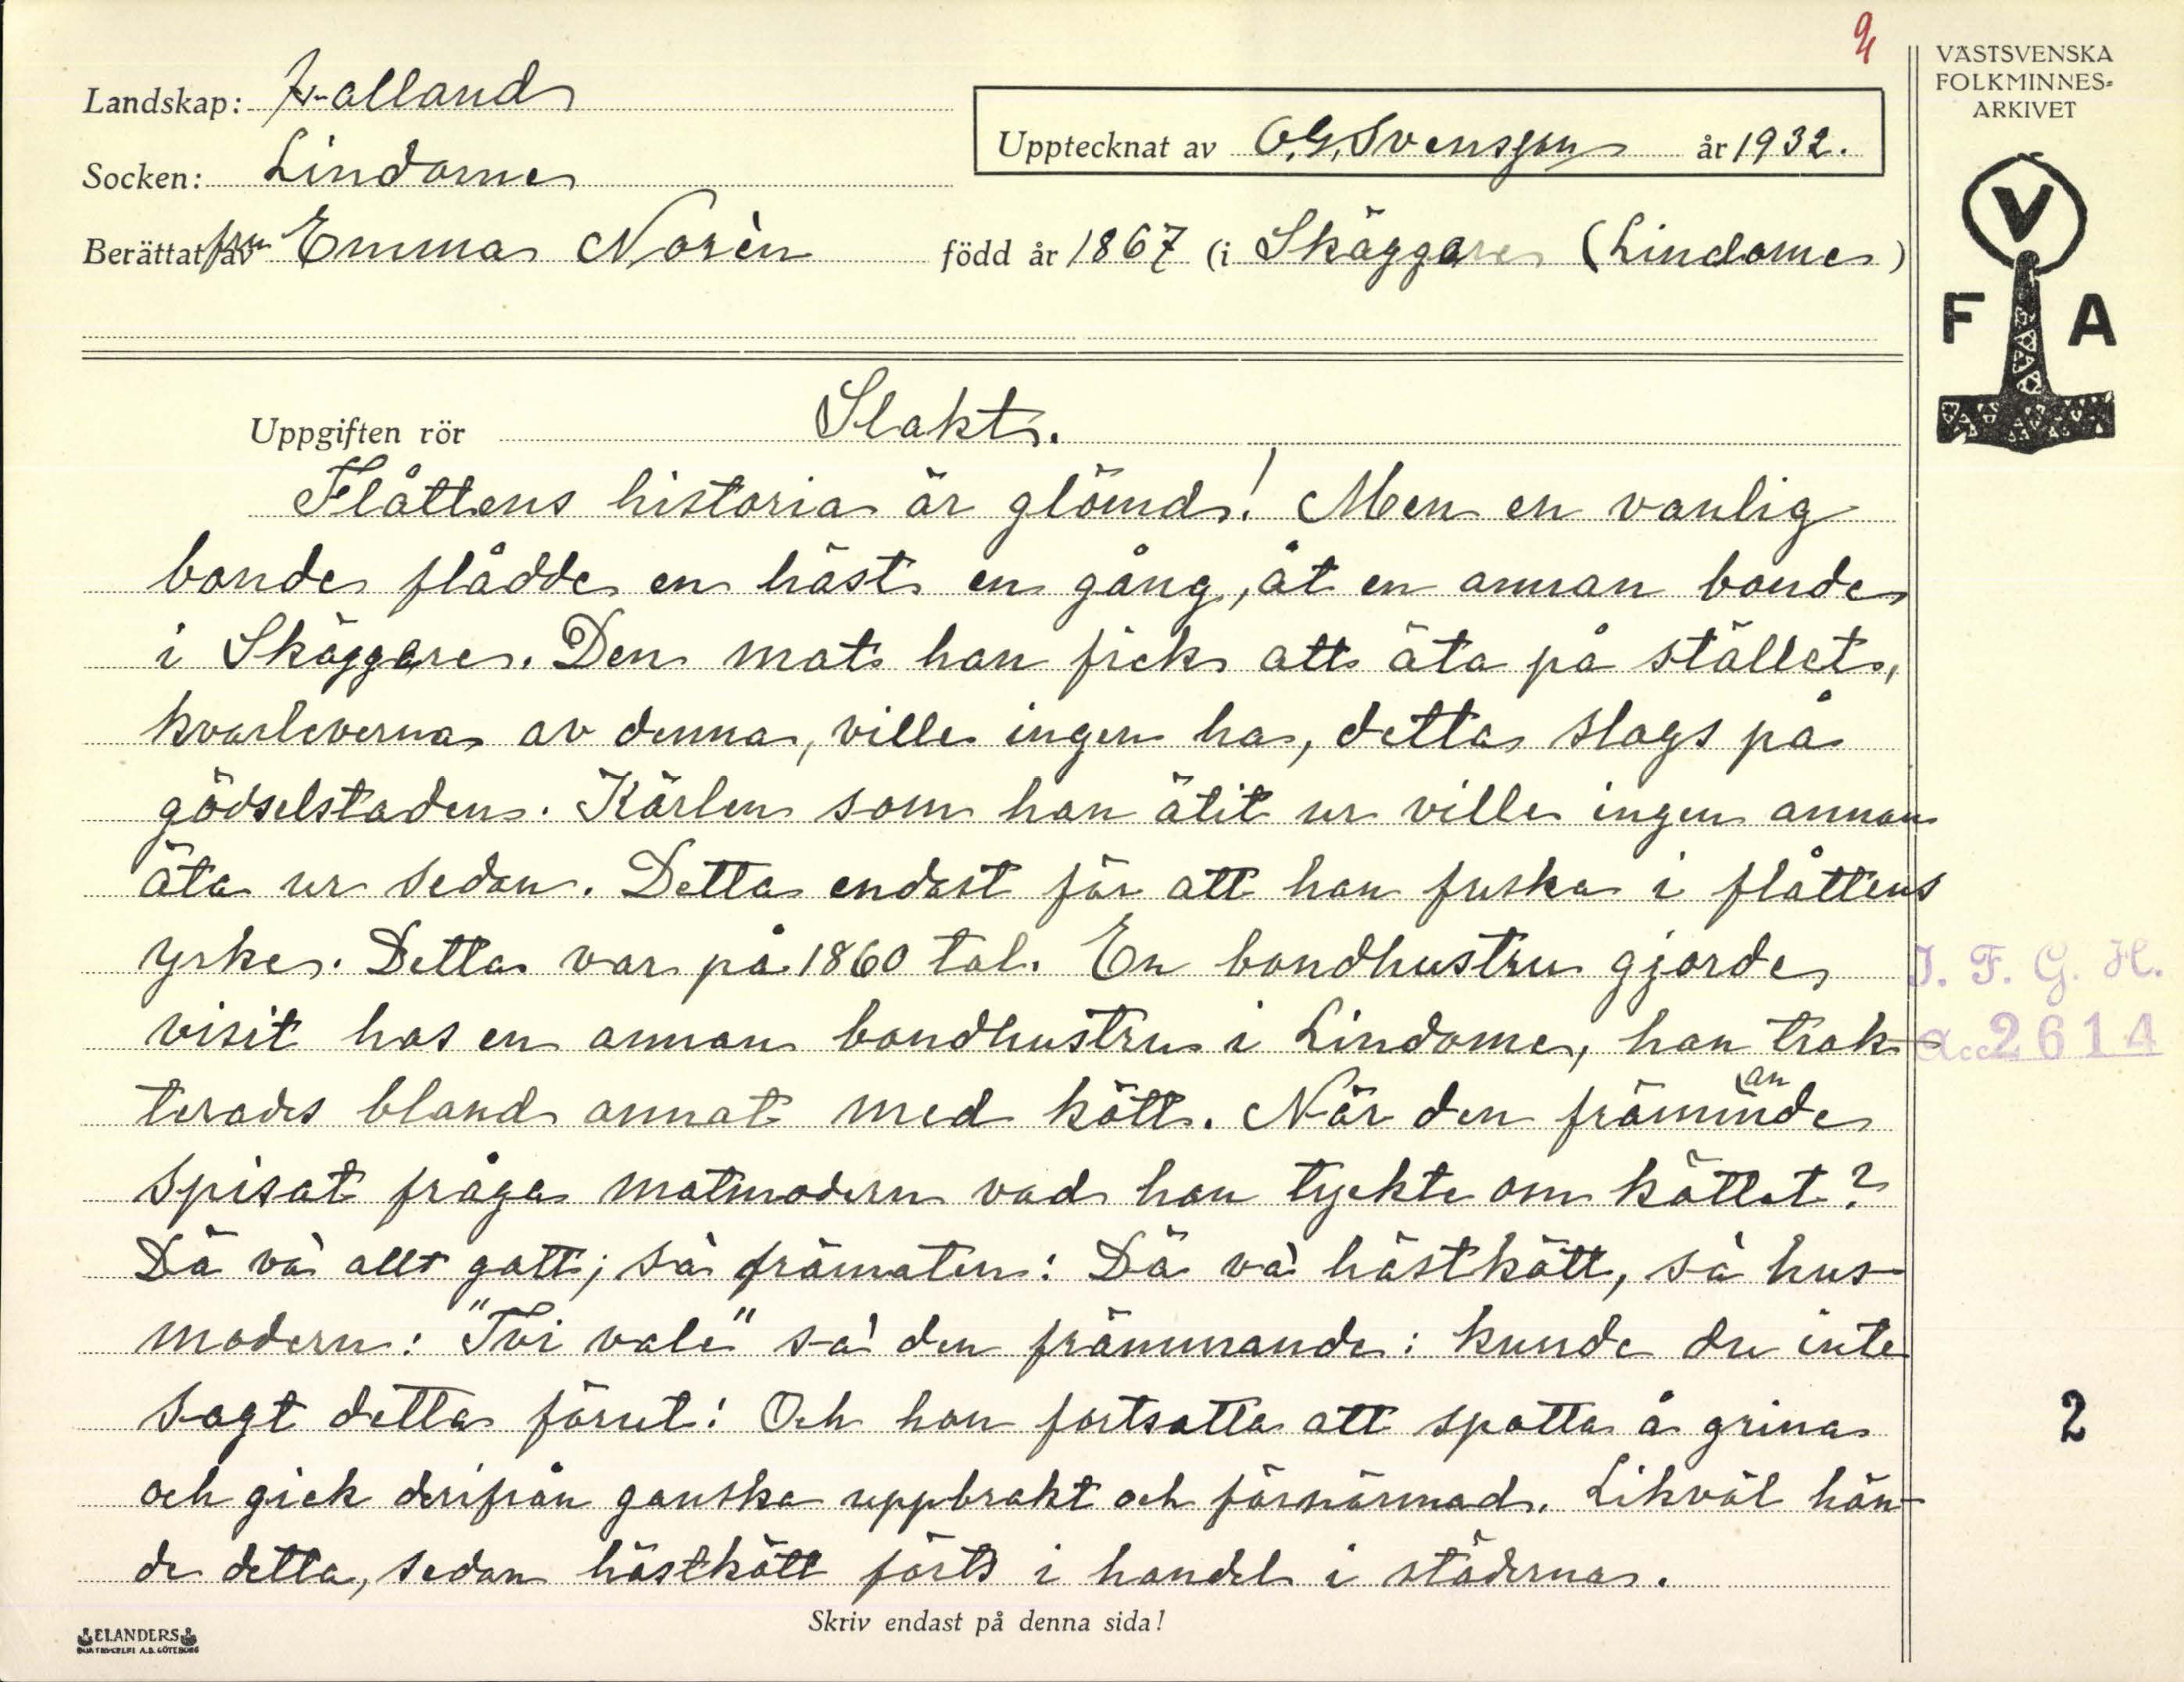 Landskap: Halland
Socken: Lindome
Berättat av fru Emma Norèn född år 1867 (i Skäggare (Lindome)
Upptecknat av O.G. Svensson år 1932.
VÄSTSVENSKA
FOLKMINNES-
ARKIVET
V
F A
Uppgiften rör Slakt.
Flåttens historia är glömd! Men en vanlig
bonde flådde en häst en gång, åt en annan bonde
i Skäggare. Den mat han fick att äta på stället,
kvarleverna av denna, ville ingen ha, detta slogs på
gödselstaden. Kärlen som han ätit ur ville ingen annan
äta ur sedan. Detta endast för att han fuska i flåttens
yrke. Detta var på 1860 tal. En bondhustru gjorde
visit hos en annan bondhustru i Lindome, hon trak-
terades bland annat med kött. När den främmande
spisat fråga matmodern vad hon tyckte om köttet?
Dä va' allt gott; sa främaten: Dä va' hästkött, sa hus-
modern: "Tvi vale" sa' den främmande: kunde du inte
sagt detta förut! Och hon fortsatta att spotta å grina
och gick derifrån ganska uppbrakt och förnärmad. Likväl hän-
de detta, sedan hästkött förts i handel i städerna.
I. F. G. H.
Acc 2614
2
Skriv endast på denna sida!
ELANDERS
BOKTRYCKERI A.B. GÖTEBORG